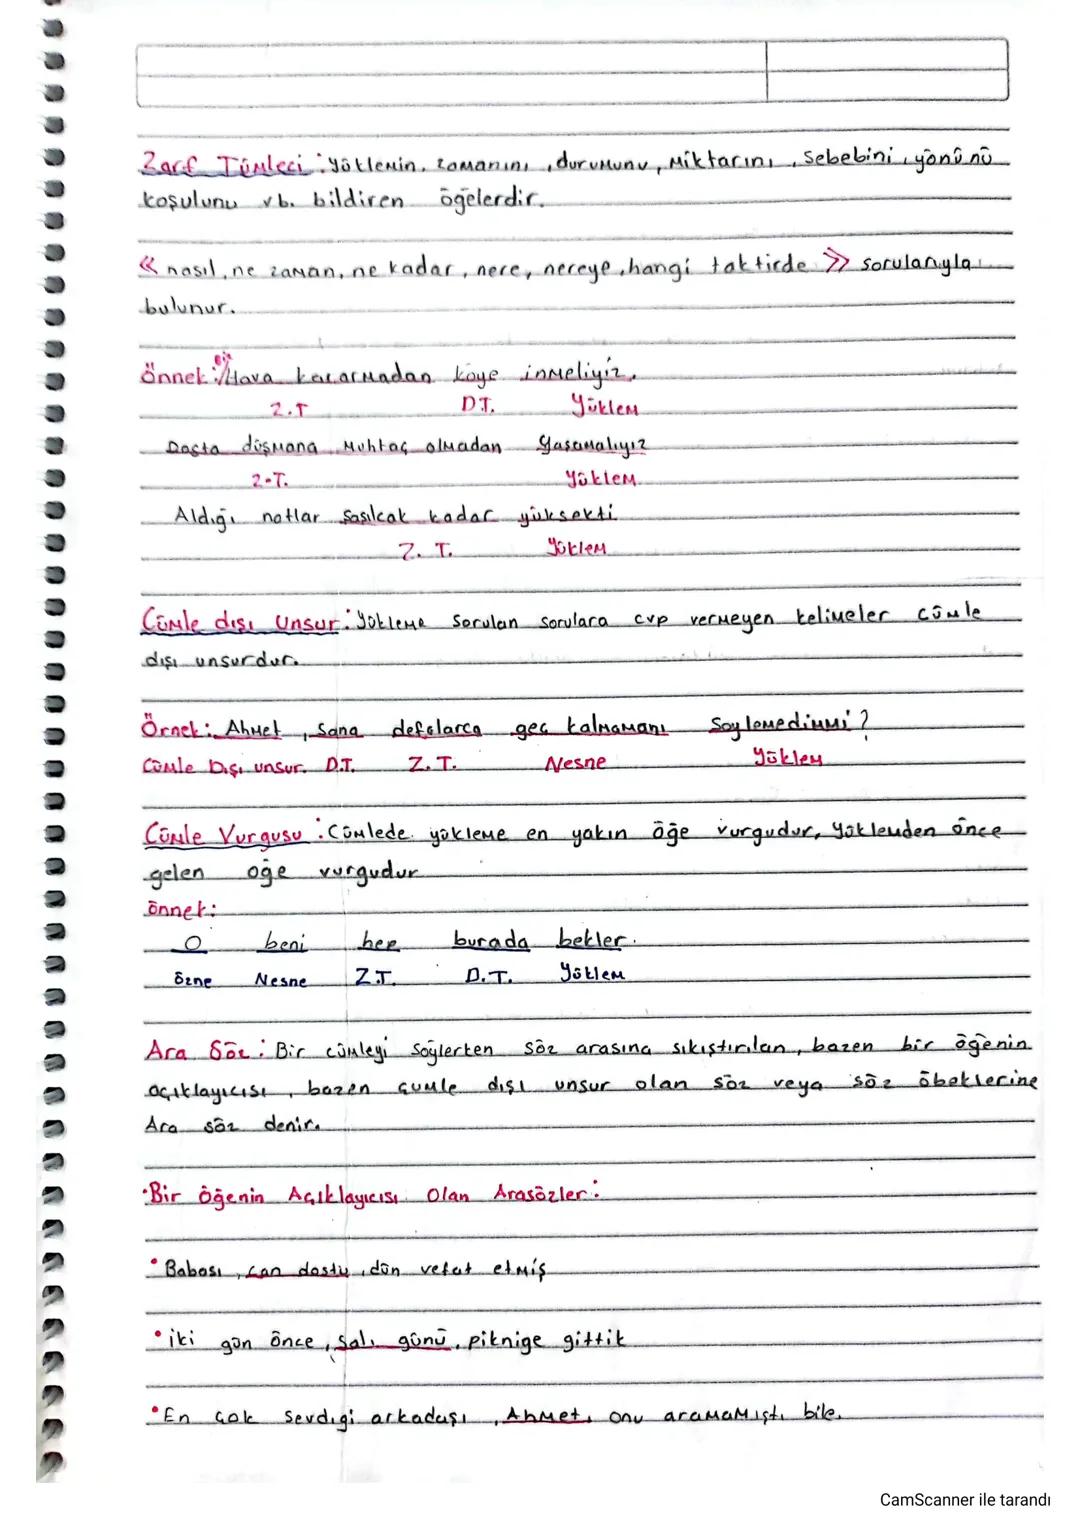 Zarf Tümleci: Yüklemin, zamanını, durumunu, miktarını, sebebini, yönünü
koşulunu vb. bildiren öğelerdir.
« nasıl, ne zaman, ne kadar, nere, nereye, hangi taktirde » sorularıyla
bulunur.
Bir
Önnek: / Hava kararmadan köye inmeliyiz.
Z.T DT. Yüklem
Dosta düşmana muhtaç olmadan yaşamalıyız
Z.T. Yüklem
Aldığı notlar şaşılcak kadar yüksekti
Z. T. Yüklem
Cümle dışı Unsur: Yükleme sorulan sorulara cvp vermeyen kelimeler cümle
dışı unsurdur.
Örnek: Ahmet, sana defalarca geç kalmamanı söylemedimmi?
Cümle Dışı unsur. D.T. Z.T. Nesne Yüklem
Cümle Vurgusu: Cümlede yükleme en yakın öğe vurgudur, Yüklemden önce
gelen öğe vurgudur
önnek:
O beni hep burada bekler.
özne Nesne Z.T. D.T. Yüklem
Ara Söz: Bir cümleyi söylerken söz arasına sıkıştırılan, bazen bir öğenin
açıklayıcısı, bazen cumle dışı unsur olan söz veya söz öbeklerine
Ara söz denir.
•Bir öğenin Açıklayıcısı Olan Arasözler:
• Babası, can dostu, dün vefat etmiş
• iki gün önce, salı günü, piknige gittik
• En çok sevdigi arkadaşı, Ahmet, onu aramamıştı bile.
CamScanner ile tarandı